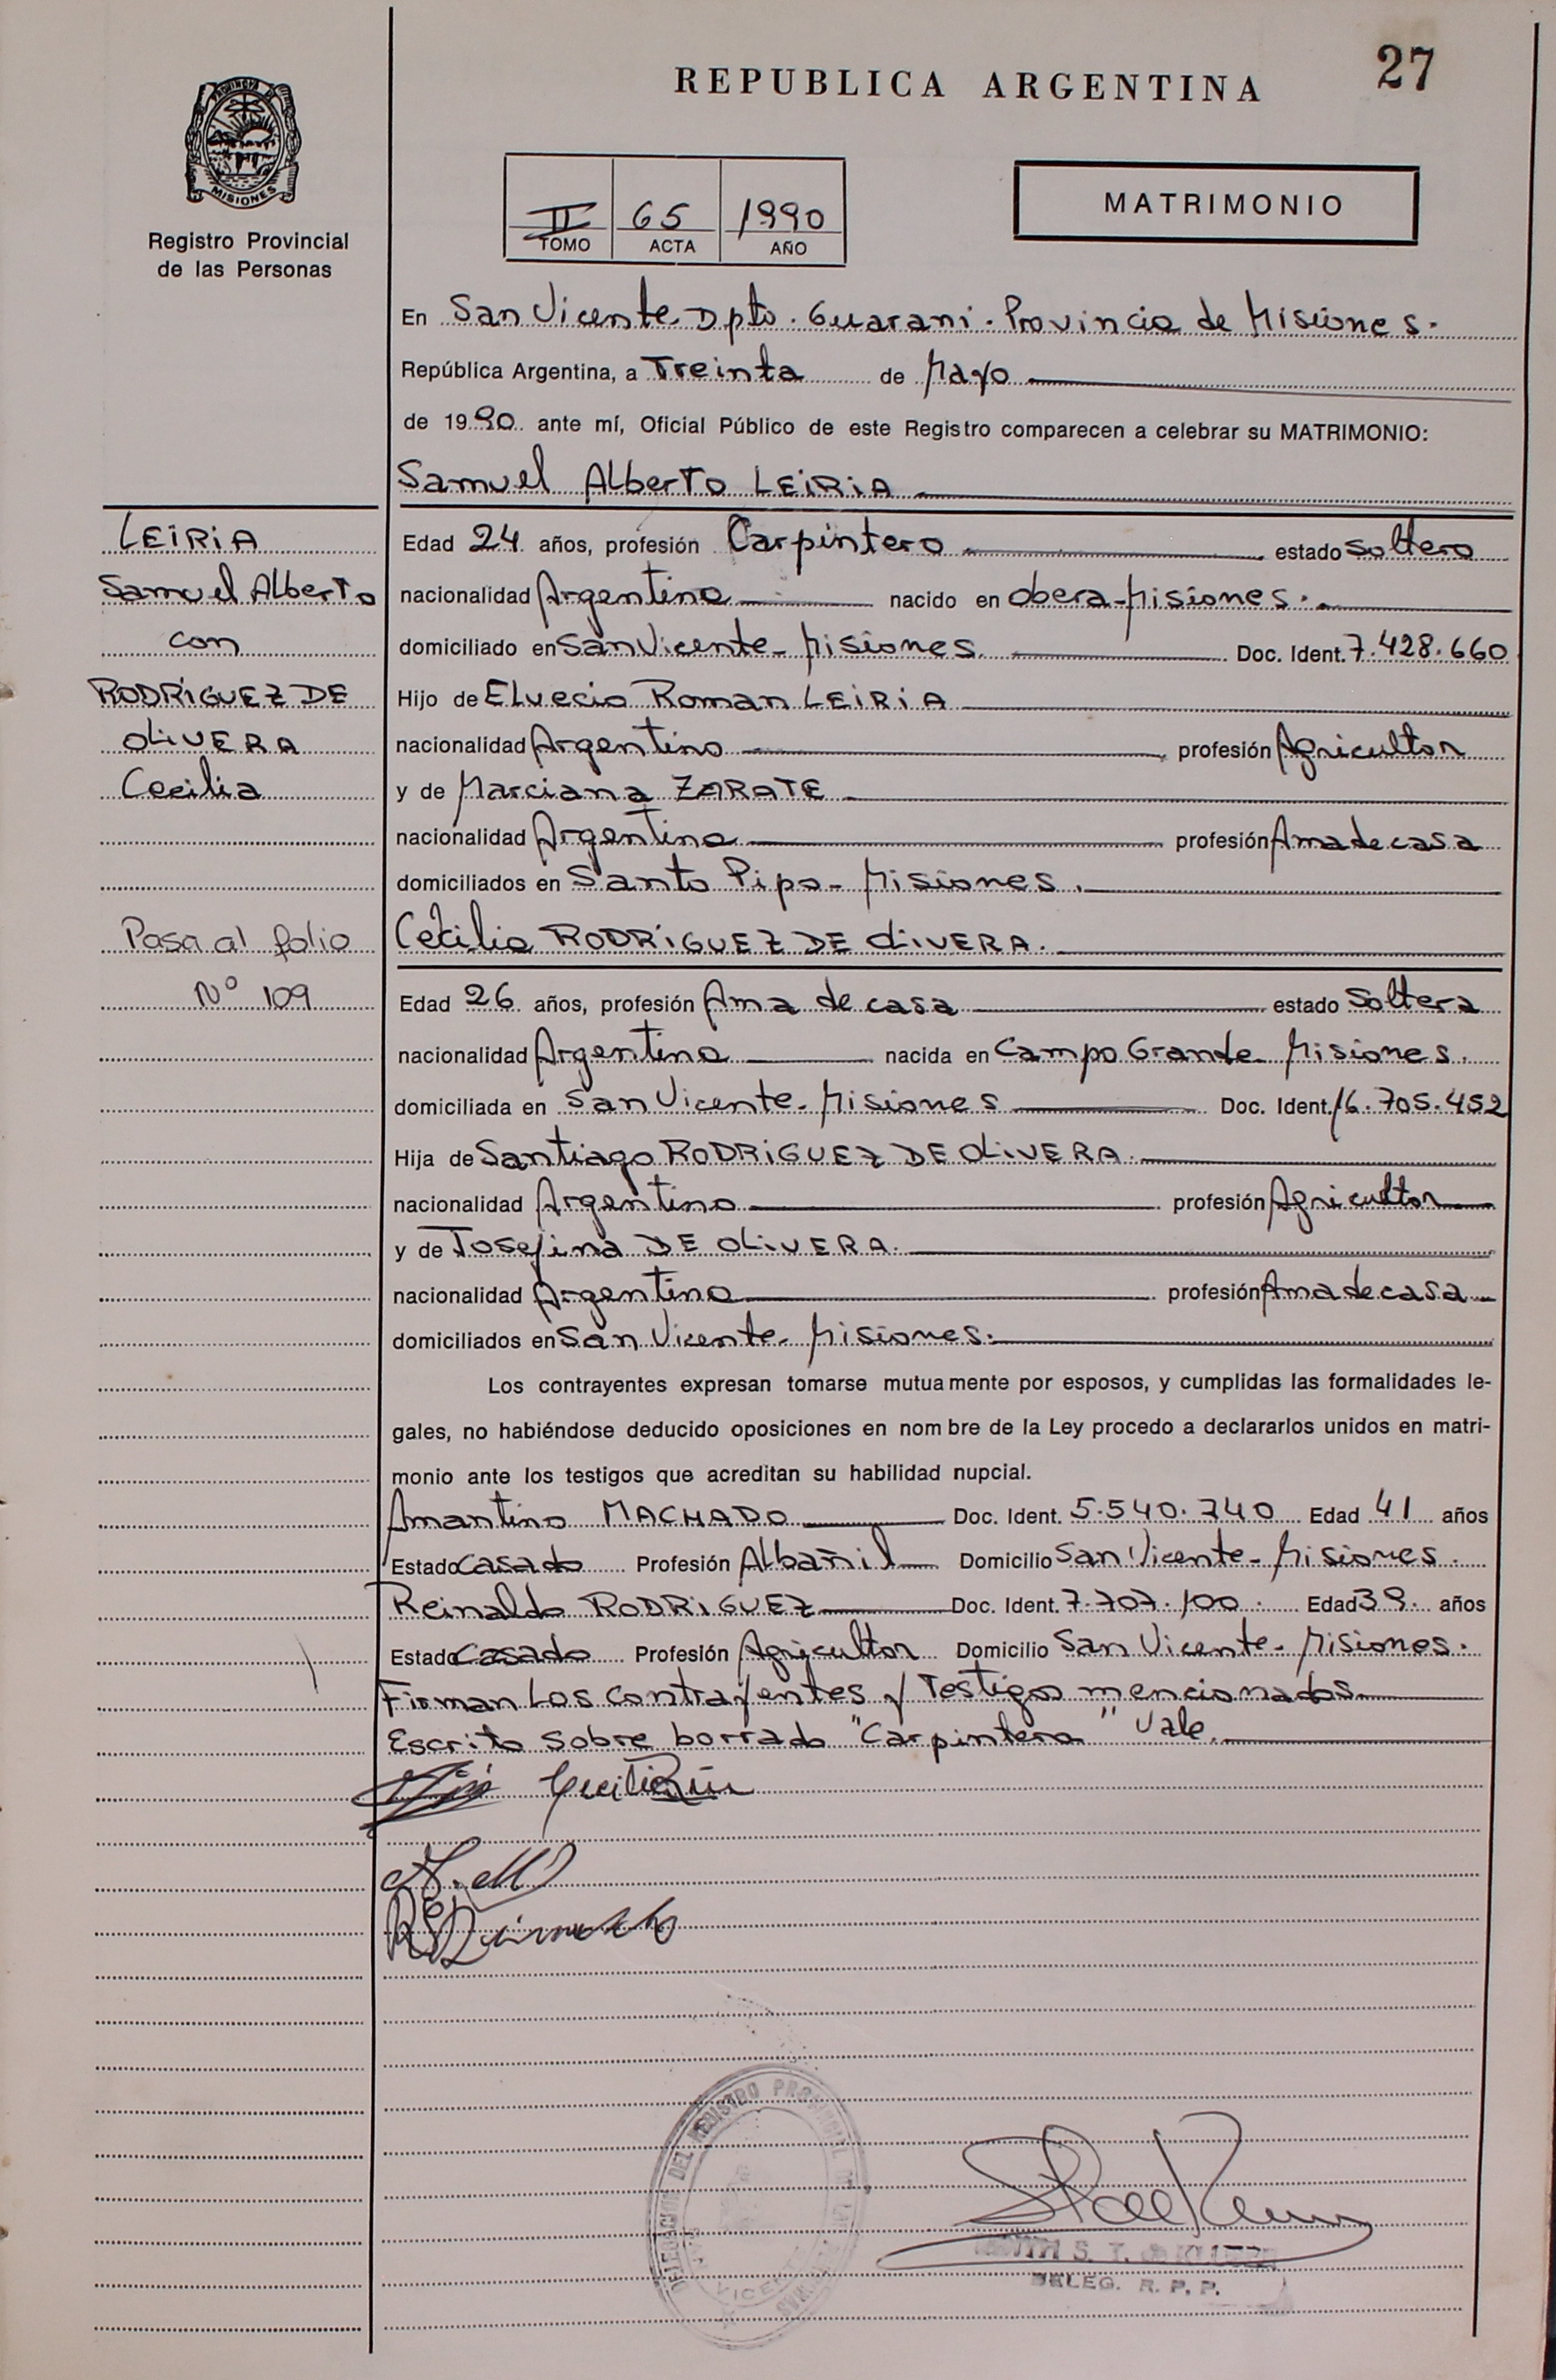 27
REPUBLICA ARGENTINA
MISIONES
Registro Provincial
de las Personas
II 65 1990
TOMO ACTA AÑO
MATRIMONIO
En San Vicente Dpto. Guarani. Provincia de Misiones.
República Argentina, a Treinta de Mayo
de 1990 ante mí, Oficial Público de este Registro comparecen a celebrar su MATRIMONIO:
Samuel Alberto LEIRIA
LEIRIA
Samuel Alberto
con
RODRIGUEZ DE
OLIVERA
Cecilia
Pasa al folio
Nº 109
Edad 24 años, profesión Carpintero estado soltero
nacionalidad Argentina nacido en Obera-Misiones.
domiciliado en San Vicente-Misiones. Doc. Ident. 7.428.660
Hijo de Elvecio Roman LEIRIA
nacionalidad Argentino profesión Agricultor
y de Marciana ZARATE
nacionalidad Argentina profesión Ama de casa
domiciliados en Santo Pipo-Misiones.
Cecilia RODRIGUEZ DE OLIVERA.
Edad 26 años, profesión Ama de casa estado Soltera
nacionalidad Argentina nacida en Campo Grande Misiones.
domiciliada en San Vicente-Misiones Doc. Ident. 16.705.452
Hija de Santiago RODRIGUEZ DE OLIVERA.
nacionalidad Argentino profesión Agricultor
y de Josefina DE OLIVERA.
nacionalidad Argentina profesión Ama de casa
domiciliados en San Vicente-Misiones.
Los contrayentes expresan tomarse mutuamente por esposos, y cumplidas las formalidades le-
gales, no habiéndose deducido oposiciones en nombre de la Ley procedo a declararlos unidos en matri-
monio ante los testigos que acreditan su habilidad nupcial.
Amantino MACHADO Doc. Ident. 5.540.740 Edad 41 años
Estado casado Profesión Albañil Domicilio San Vicente-Misiones.
Reinaldo RODRIGUEZ Doc. Ident. 7.707.100. Edad 39. años
Estado casado Profesión Agricultor Domicilio San Vicente-Misiones.
Firman los contrayentes y Testigos mencionados.
Escrito sobre borrado "Carpintero" Vale.
DELEGACION DEL REGISTRO PROVINCIAL DE LAS
VICENTE
S. T.
DELEG. R. P. P.